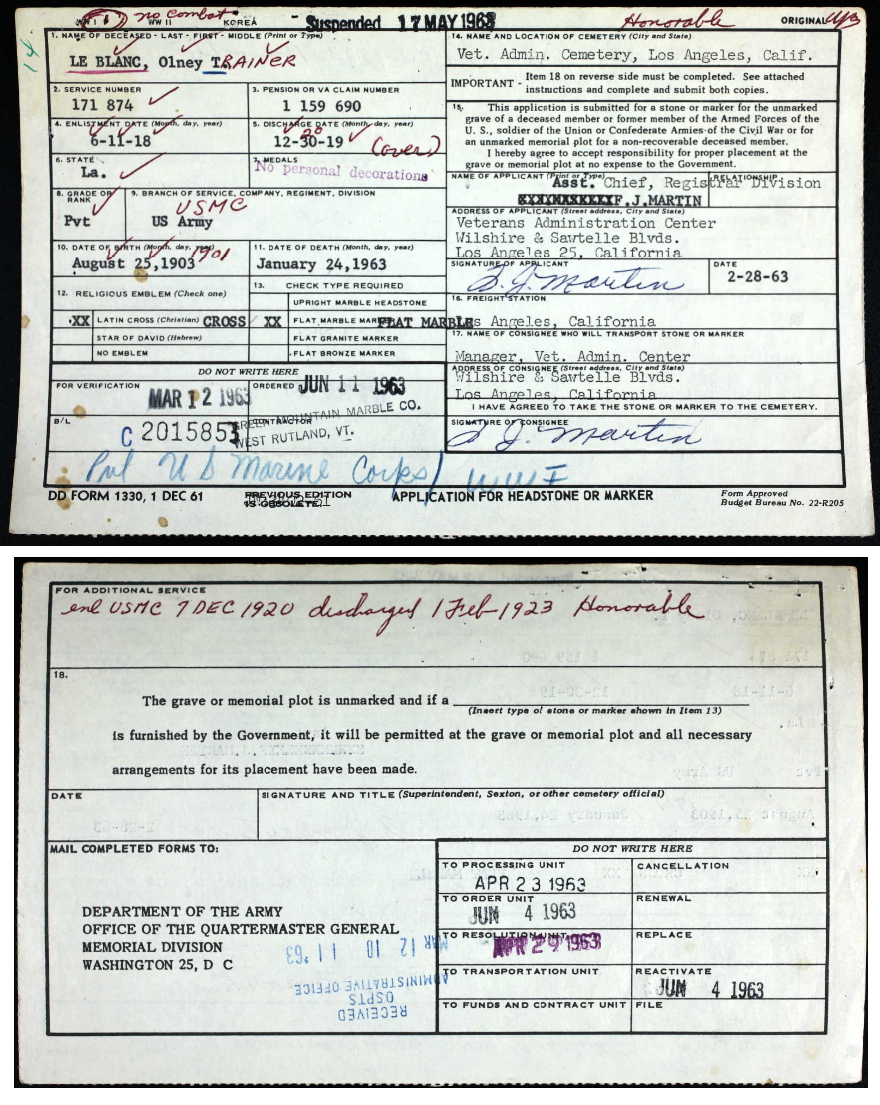 WW I no combat WW II KOREA Suspended 17 MAY 1963 Honorable ORIGINAL
1. NAME OF DECEASED - LAST - FIRST - MIDDLE (Print or Type)
LE BLANC, Olney T. TRAINER
2. SERVICE NUMBER
171 874
3. PENSION OR VA CLAIM NUMBER
1 159 690
4. ENLISTMENT DATE (Month, day, year)
6-11-18
5. DISCHARGE DATE (Month, day, year)
12-30-19 20 (over)
6. STATE
La.
7. MEDALS
No personal decorations
8. GRADE OR RANK
Pvt
9. BRANCH OF SERVICE, COMPANY, REGIMENT, DIVISION
USMC
US Army
10. DATE OF BIRTH (Month, day, year)
August 25,1903 1901
11. DATE OF DEATH (Month, day, year)
January 24,1963
12. RELIGIOUS EMBLEM (Check one)
XX LATIN CROSS (Christian) CROSS
STAR OF DAVID (Hebrew)
NO EMBLEM
13. CHECK TYPE REQUIRED
UPRIGHT MARBLE HEADSTONE
XX FLAT MARBLE MARKER FLAT MARBLE
FLAT GRANITE MARKER
FLAT BRONZE MARKER
DO NOT WRITE HERE
FOR VERIFICATION
MAR 12 1963
ORDERED JUN 11 1963
B/L
C 2015853
CONTRACTOR
GREEN MOUNTAIN MARBLE CO.
WEST RUTLAND, VT.
14. NAME AND LOCATION OF CEMETERY (City and State)
Vet. Admin. Cemetery, Los Angeles, Calif.
IMPORTANT - Item 18 on reverse side must be completed. See attached
instructions and complete and submit both copies.
15. This application is submitted for a stone or marker for the unmarked
grave of a deceased member or former member of the Armed Forces of the
U. S., soldier of the Union or Confederate Armies of the Civil War or for
an unmarked memorial plot for a non-recoverable deceased member.
I hereby agree to accept responsibility for proper placement at the
grave or memorial plot at no expense to the Government.
NAME OF APPLICANT (Print or Type) RELATIONSHIP
Asst. Chief, Registrar Division
F.J.MARTIN
ADDRESS OF APPLICANT (Street address, City and State)
Veterans Administration Center
Wilshire & Sawtelle Blvds.
Los Angeles 25, California
SIGNATURE OF APPLICANT
F. J. Martin
DATE
2-28-63
16. FREIGHT STATION
Los Angeles, California
17. NAME OF CONSIGNEE WHO WILL TRANSPORT STONE OR MARKER
Manager, Vet. Admin. Center
ADDRESS OF CONSIGNEE (Street address, City and State)
Wilshire & Sawtelle Blvds.
Los Angeles, California
I HAVE AGREED TO TAKE THE STONE OR MARKER TO THE CEMETERY.
SIGNATURE OF CONSIGNEE
F. J. Martin
Pvt U S Marine Corps / WWI
DD FORM 1330, 1 DEC 61
PREVIOUS EDITION
IS OBSOLETE.
APPLICATION FOR HEADSTONE OR MARKER
Form Approved
Budget Bureau No. 22-R205
FOR ADDITIONAL SERVICE
enl USMC 7 DEC 1920 discharged 1 Feb-1923 Honorable
18.
The grave or memorial plot is unmarked and if a
(Insert type of stone or marker shown in Item 13)
is furnished by the Government, it will be permitted at the grave or memorial plot and all necessary
arrangements for its placement have been made.
DATE
SIGNATURE AND TITLE (Superintendent, Sexton, or other cemetery official)
MAIL COMPLETED FORMS TO:
DEPARTMENT OF THE ARMY
OFFICE OF THE QUARTERMASTER GENERAL
MEMORIAL DIVISION
WASHINGTON 25, D C
MAR 12 10 11 '63
ADMINISTRATIVE OFFICE
OSPTS
RECEIVED
DO NOT WRITE HERE
TO PROCESSING UNIT
APR 23 1963
CANCELLATION
TO ORDER UNIT
JUN 4 1963
RENEWAL
TO RESOLUTION UNIT
APR 29 1963
REPLACE
TO TRANSPORTATION UNIT
REACTIVATE
JUN 4 1963
TO FUNDS AND CONTRACT UNIT
FILE